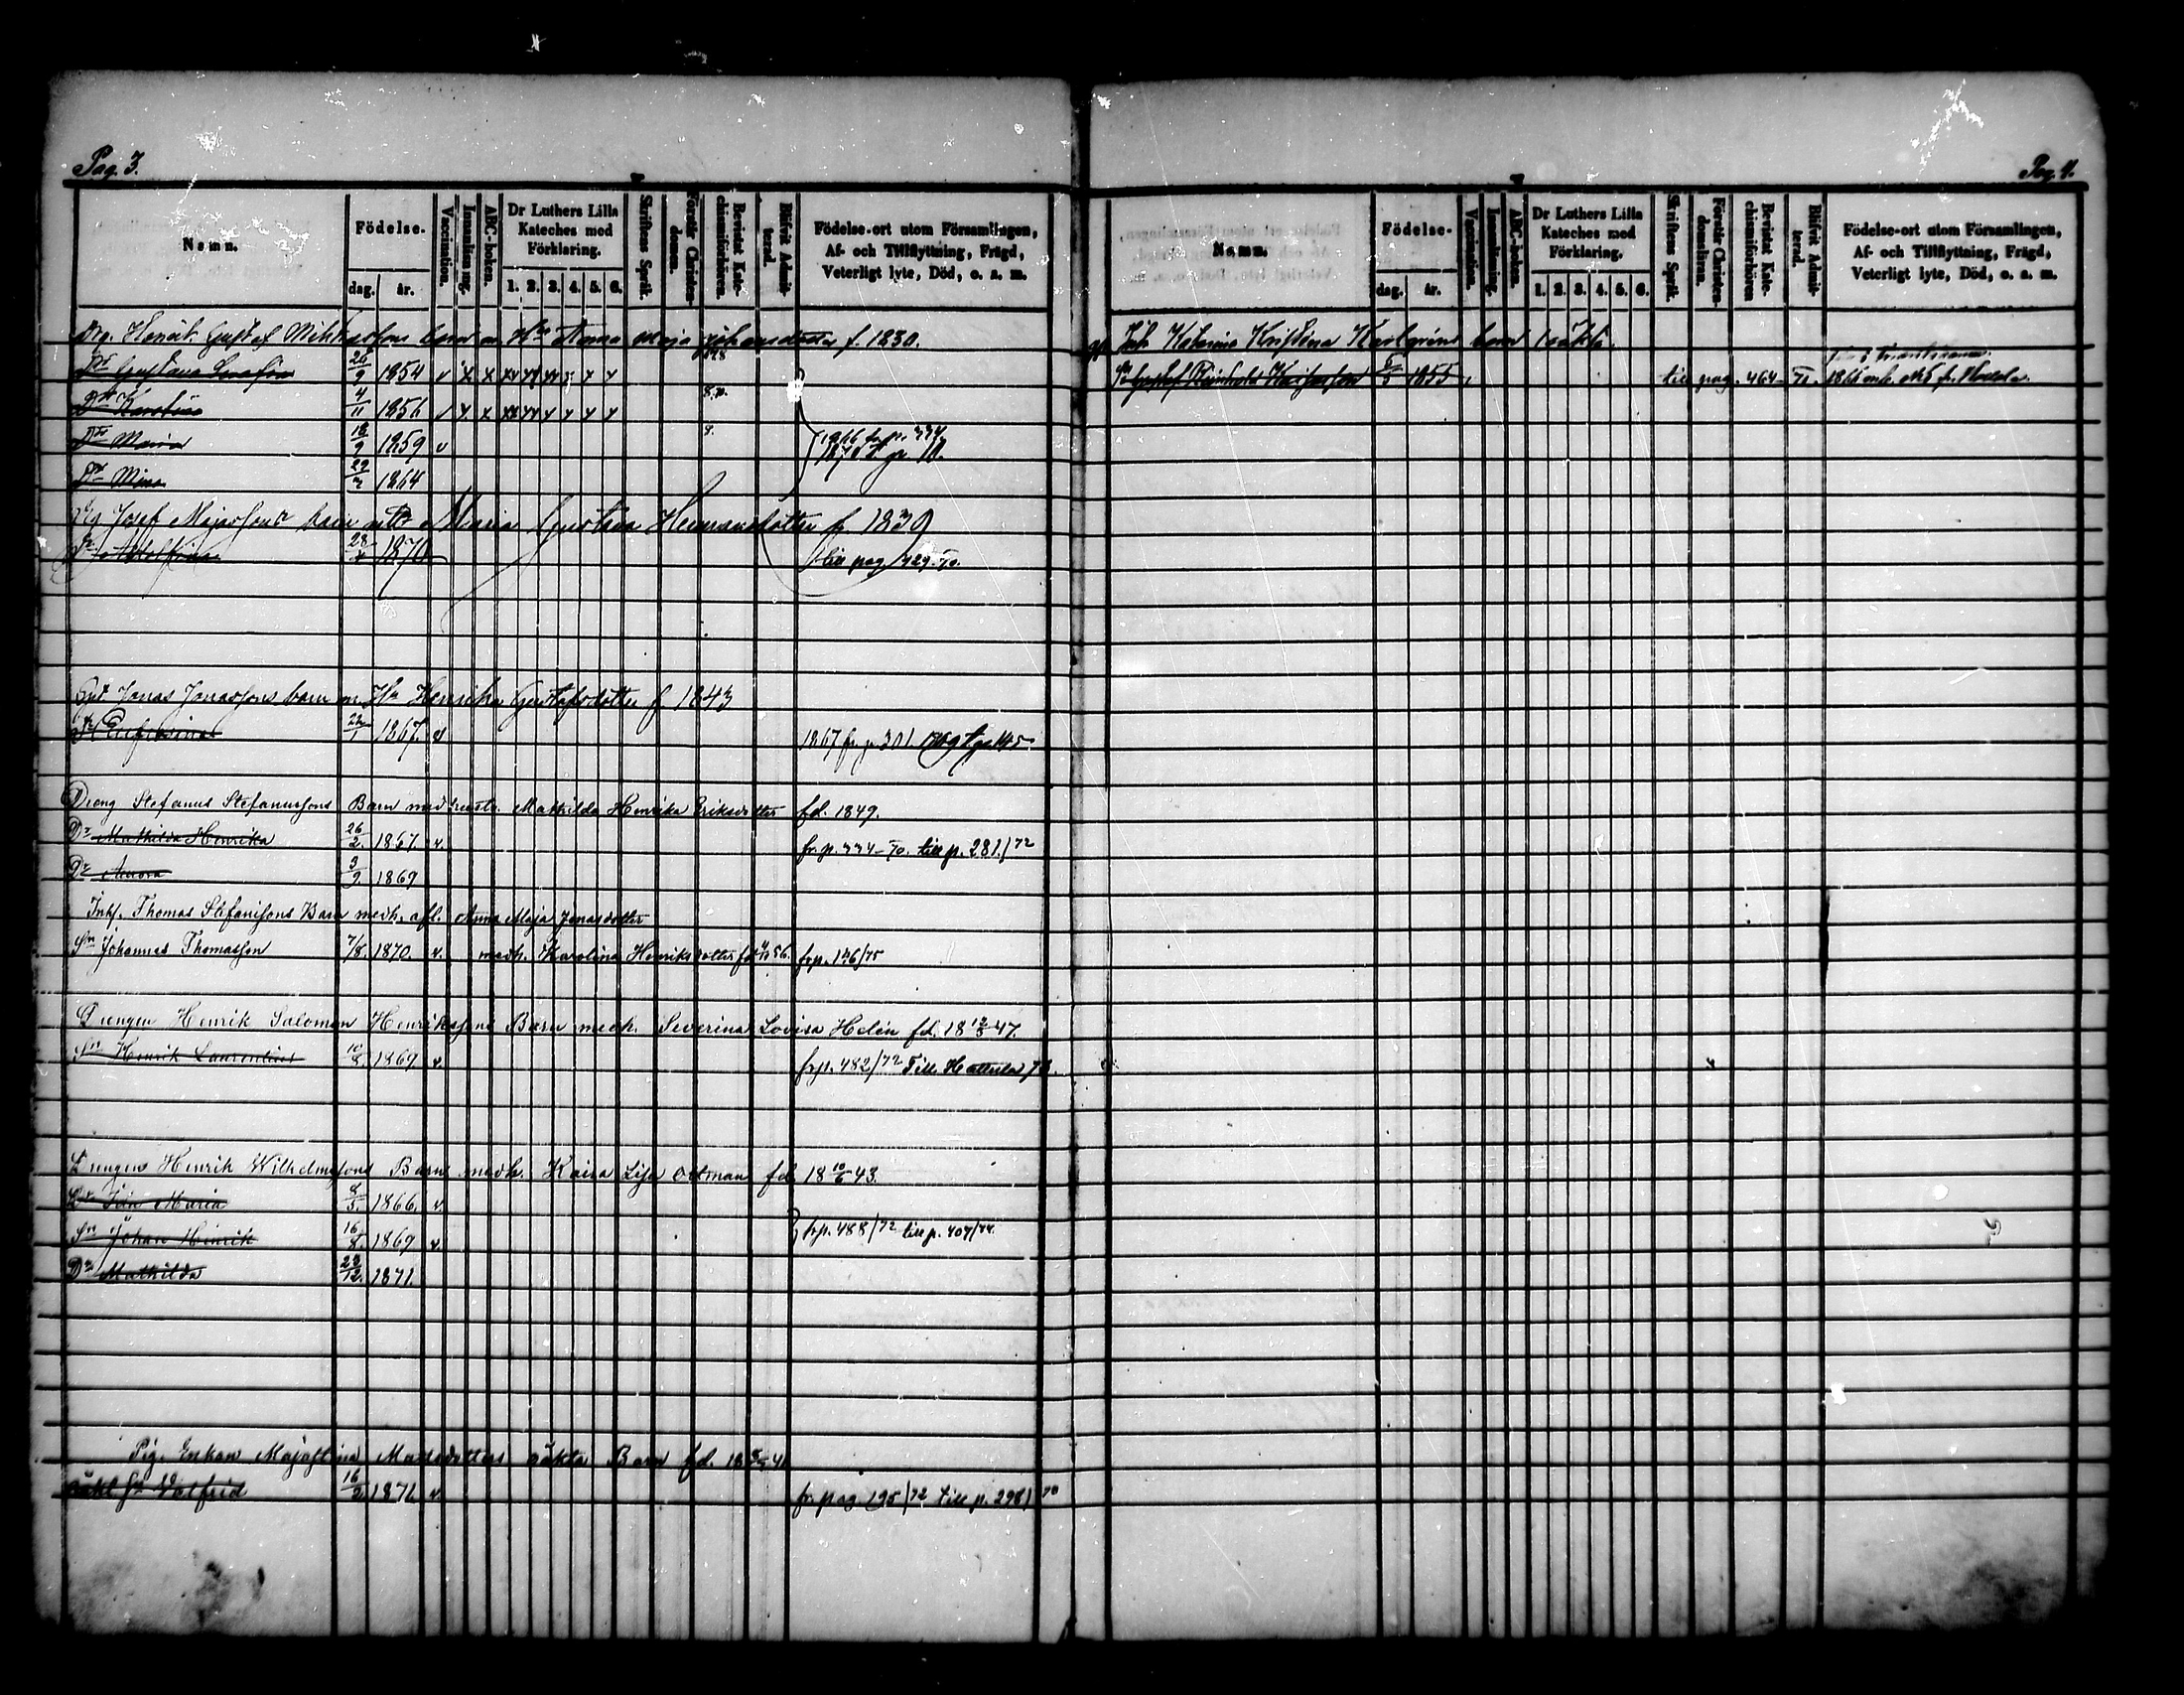 Pag. 3.
Namn.
Födelse.
dag. år.
Vaccination.
Innanläsning.
ABC-boken.
Dr Luthers Lilla Kateches med Förklaring.
1. 2. 3. 4. 5. 6.
Skriftens Språk.
Förstår Christendomen.
Bevistat Katechismiförhören.
Blifvit Admitterad.
Födelse-ort utom Församlingen,
Af- och Tillflyttning, Frägd,
Veterligt lyte, Död, o. a. m.
Drg. Henrik Gustaf barn m. Hu Anna Maja Johansdotter f. 1830.
Dr Gustava Serafina 26/9 1854 v x x
Dr Karolina 4/11 1856 v x x
Dr Maria 18/9 1859 v
1866 fr. p. 334.
Dr Mina 29/ 1864
Josef Majassons barn Maria Gustava Hermansdotter f. 1839
Dr Adolfina 28/ 1870 till pag. 429-70.
Jonas Jonassons barn m. Hu Henrika Gustafsdotter f. 1843
Dr Eufrosina 22/1 1867. v 1867 fr. p. 301. 1869 t. p. 145
Dreng Stefanus Stefanussons Barn med hustr. Mathilda Henrika Eriksdotter fd. 1849.
Dr Mathilda Henrika 26/2. 1867. v. fr. p. 334-70. till p. 281./72
Dr Aurora 3/9. 1869
Inh. Thomas Stefanssons Barn medh. afl. Anna Maja Jonasdotter
Sn Johannes Thomasson 7/8. 1870. v. medh. Karolina Henriksdotter fd 4/11 56. frp. 146/75
Drengen Henrik Salomon Henrikssons Barn medh. Severina Lovisa Helén fd. 18 12/8 47.
Sn Henrik Laurentius 10/8. 1869. v. frp. 482/72 Till Hattula 73.
Drengens Henrik Wilhelmssons Barn medh. Kaisa Lisa Ottman fd. 18 10/6 43.
Dr Ida Maria 8/3. 1866. v.
Sn Johan Henrik 16/8. 1869 v. frp. 488/72 till p. 407/74.
Dr Mathilda 22/12. 1871.
Pig. Enkan Majastina Mattsdotters oäkta Barn fd. 18 41
oäkt Sn Valfrid 16/2. 1871. v. fr. pag 195/72 till p. 298/78
Pag. 4.
Namn.
Födelse-
dag. år.
Vaccination.
Innanläsning.
ABC-boken.
Dr Luthers Lilla Kateches med Förklaring.
1. 2. 3. 4. 5. 6.
Skriftens Språk.
Förstår Christendomsläran.
Bevistat Katechismiförhören
Blifvit Admitterad.
Födelse-ort utom Församlingen,
Af- och Tillflyttning, Frägd,
Veterligt lyte, Död, o. a. m.
Katarina Kristina Karlgréns barn oäkta.
Sn Gustaf Reinhold 1855 till pag. 464-71. 1866 enl. att. 5 fr.